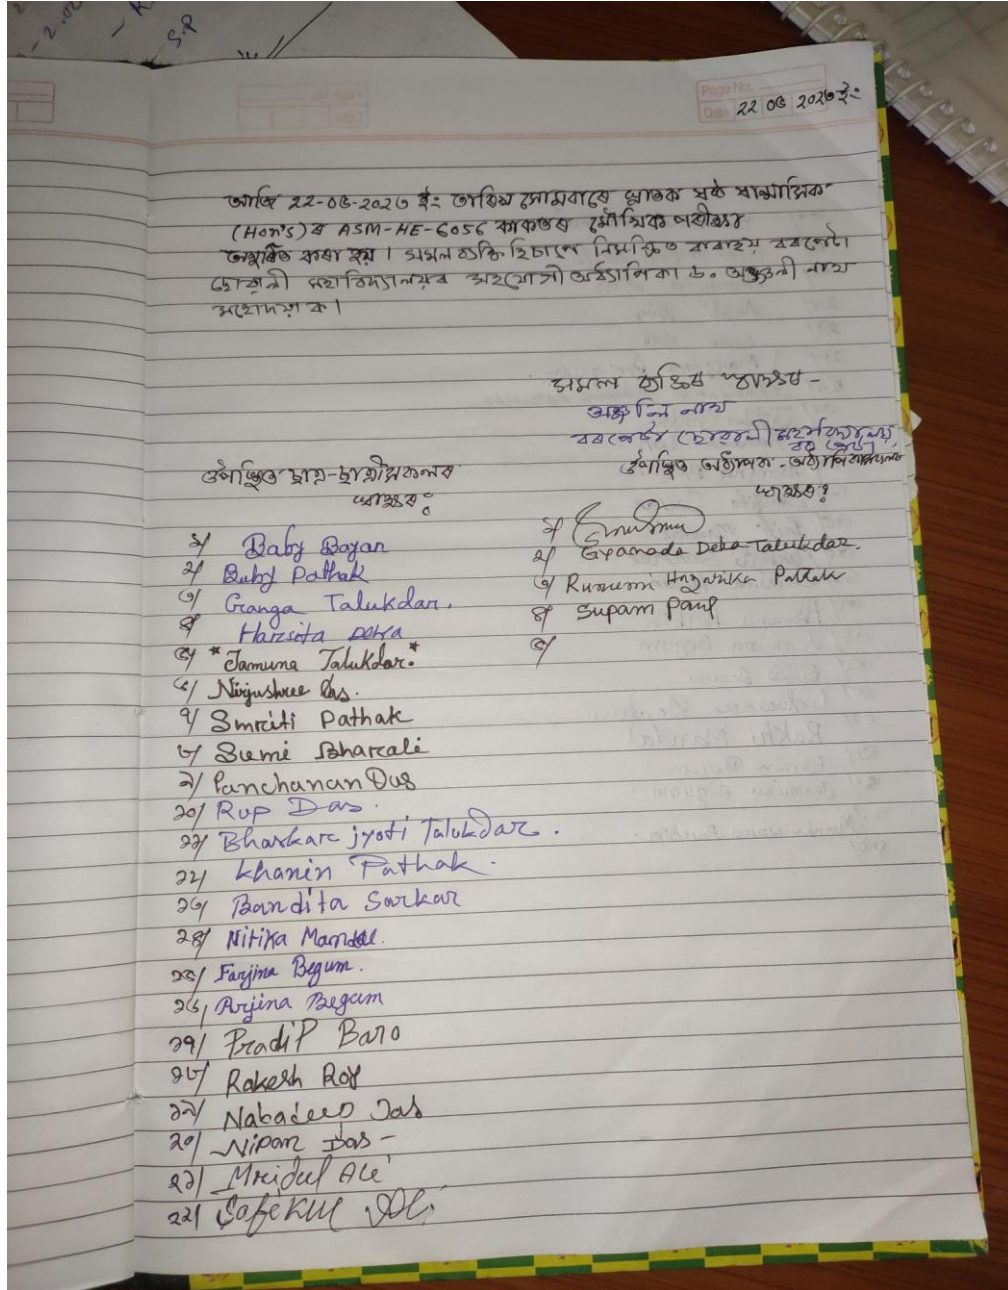 - 2.0
- S.P
Page No.
Date 22 05 2023 ইং
আজি 22-05-2023 ইং তাৰিখ সোমবাৰে স্নাতক ষষ্ঠ ষান্মাসিক
(Hon's)ৰ ASM-HE-6056 কাকতৰ মৌখিক পৰীক্ষা
অনুষ্ঠিত কৰা হয়। সমল ব্যক্তি হিচাপে নিমন্ত্ৰিত কৰা হয় বৰপেটা
ছোৱালী মহাবিদ্যালয়ৰ সহযোগী অধ্যাপিকা ড. অঞ্জলী নাথ
মহোদয়াক।
সমল ব্যক্তিৰ স্বাক্ষৰ -
অঞ্জলি নাথ
বৰপেটা ছোৱালী মহাবিদ্যালয়,
বৰপেটা
উপস্থিত ছাত্ৰ-ছাত্ৰীসকলৰ
স্বাক্ষৰ:
১/ Baby Bayan
২/ Baby Pathak
৩/ Ganga Talukdar.
৪/ Harsita Deka
৫/ *Jamuna Talukdar.*
৬/ Nirjushree Das.
৭/ Smriti Pathak
৮/ Sumi Bharali
৯/ Panchanan Das
১০/ Rup Das.
১১/ Bhaskar jyoti Talukdar.
১২/ Khanin Pathak.
১৩/ Bandita Sarkar
১৪/ Nitika Mandal.
১৫/ Farjina Begum.
১৬/ Arjina Begum
১৭/ Pradip Baro
১৮/ Rakesh Roy
১৯/ Nabadeep Das
২০/ Nipan Das -
২১/ Mridul Ali
২২/ Safikul Ali.
উপস্থিত অধ্যাপক-অধ্যাপিকাসকলৰ
স্বাক্ষৰ:
১/
২/ Gyanada Deka Talukdar.
৩/ Rumum Hazarika Pathak
৪/ Supam Paul
৫/